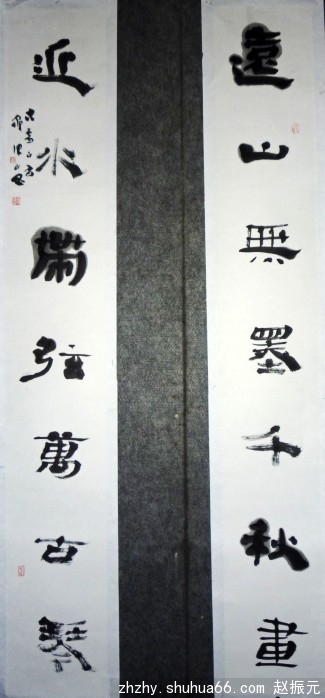 遠山無墨千秋畫
近水帶弦萬古琴
zhzhy.shuhua66.com 赵振元